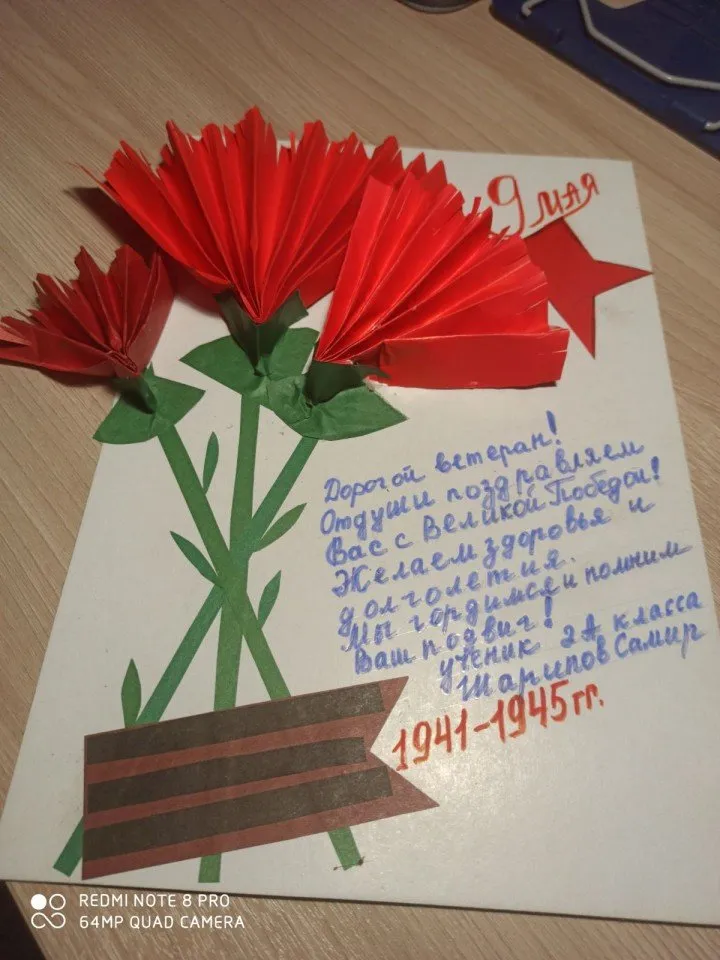 9 мая
Дорогой ветеран!
Отдуши поздравляем
Вас с Великой Победой!
Желаем здоровья и
долголетия.
Мы гордимся и помним
Ваш подвиг!
ученик 2А класса
Шарипов Самир
1941-1945 гг.
REDMI NOTE 8 PRO
64MP QUAD CAMERA